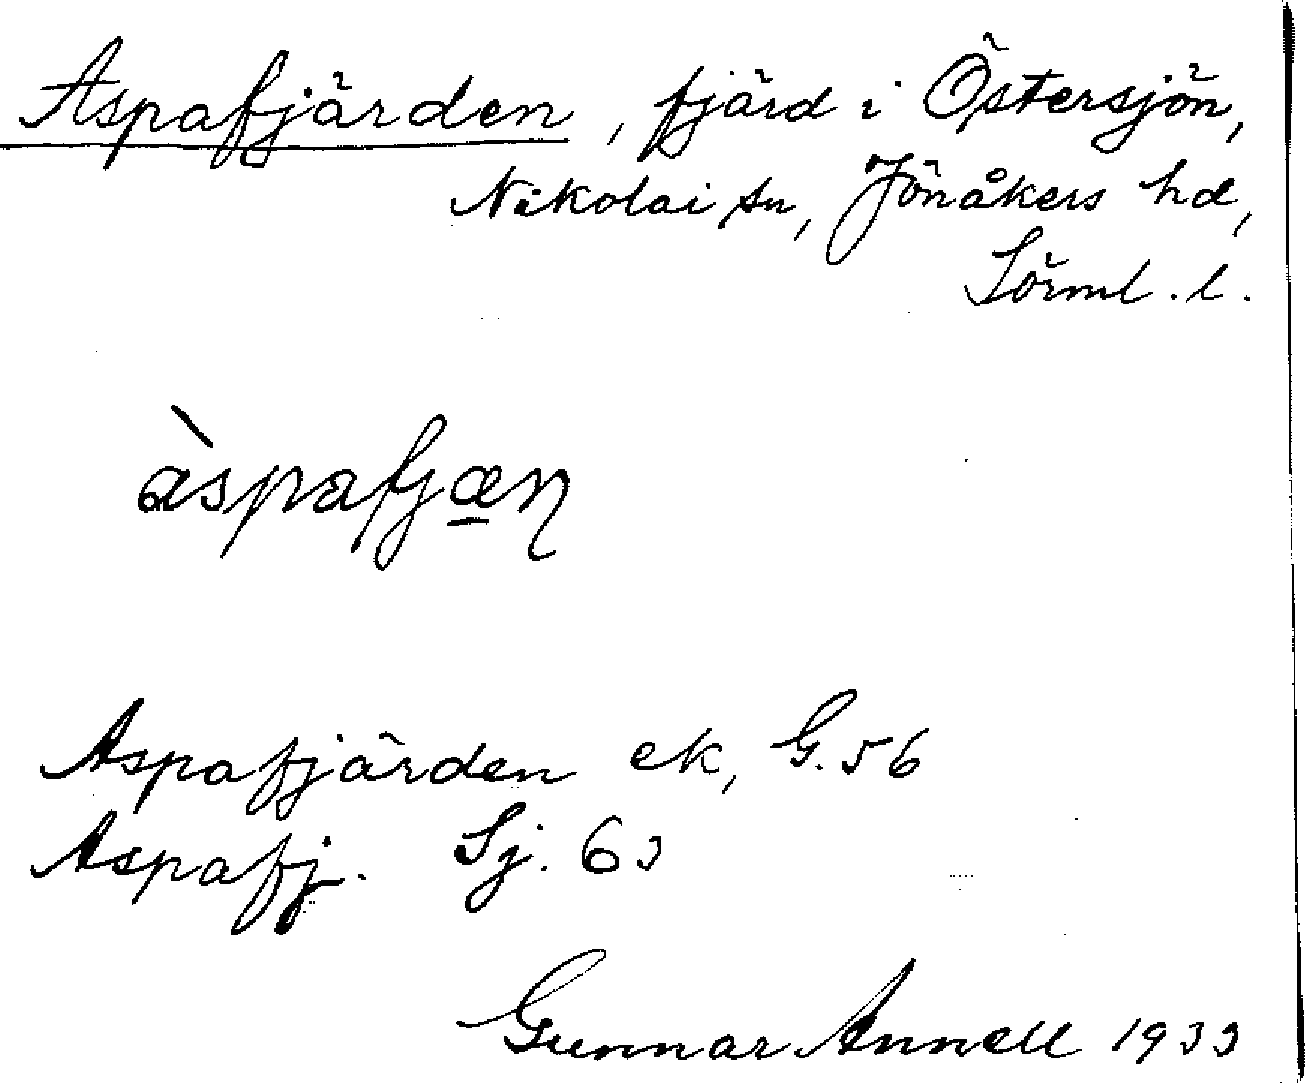 Aspafjärden, fjärd i Östersjön,
Nikolai sn, Jönåkers hd,
Sörml. l.
àspafjæ̲ɳ
Aspafjärden ek, G. 56
Aspafj. Sj. 63
Gunnar Annell 1933